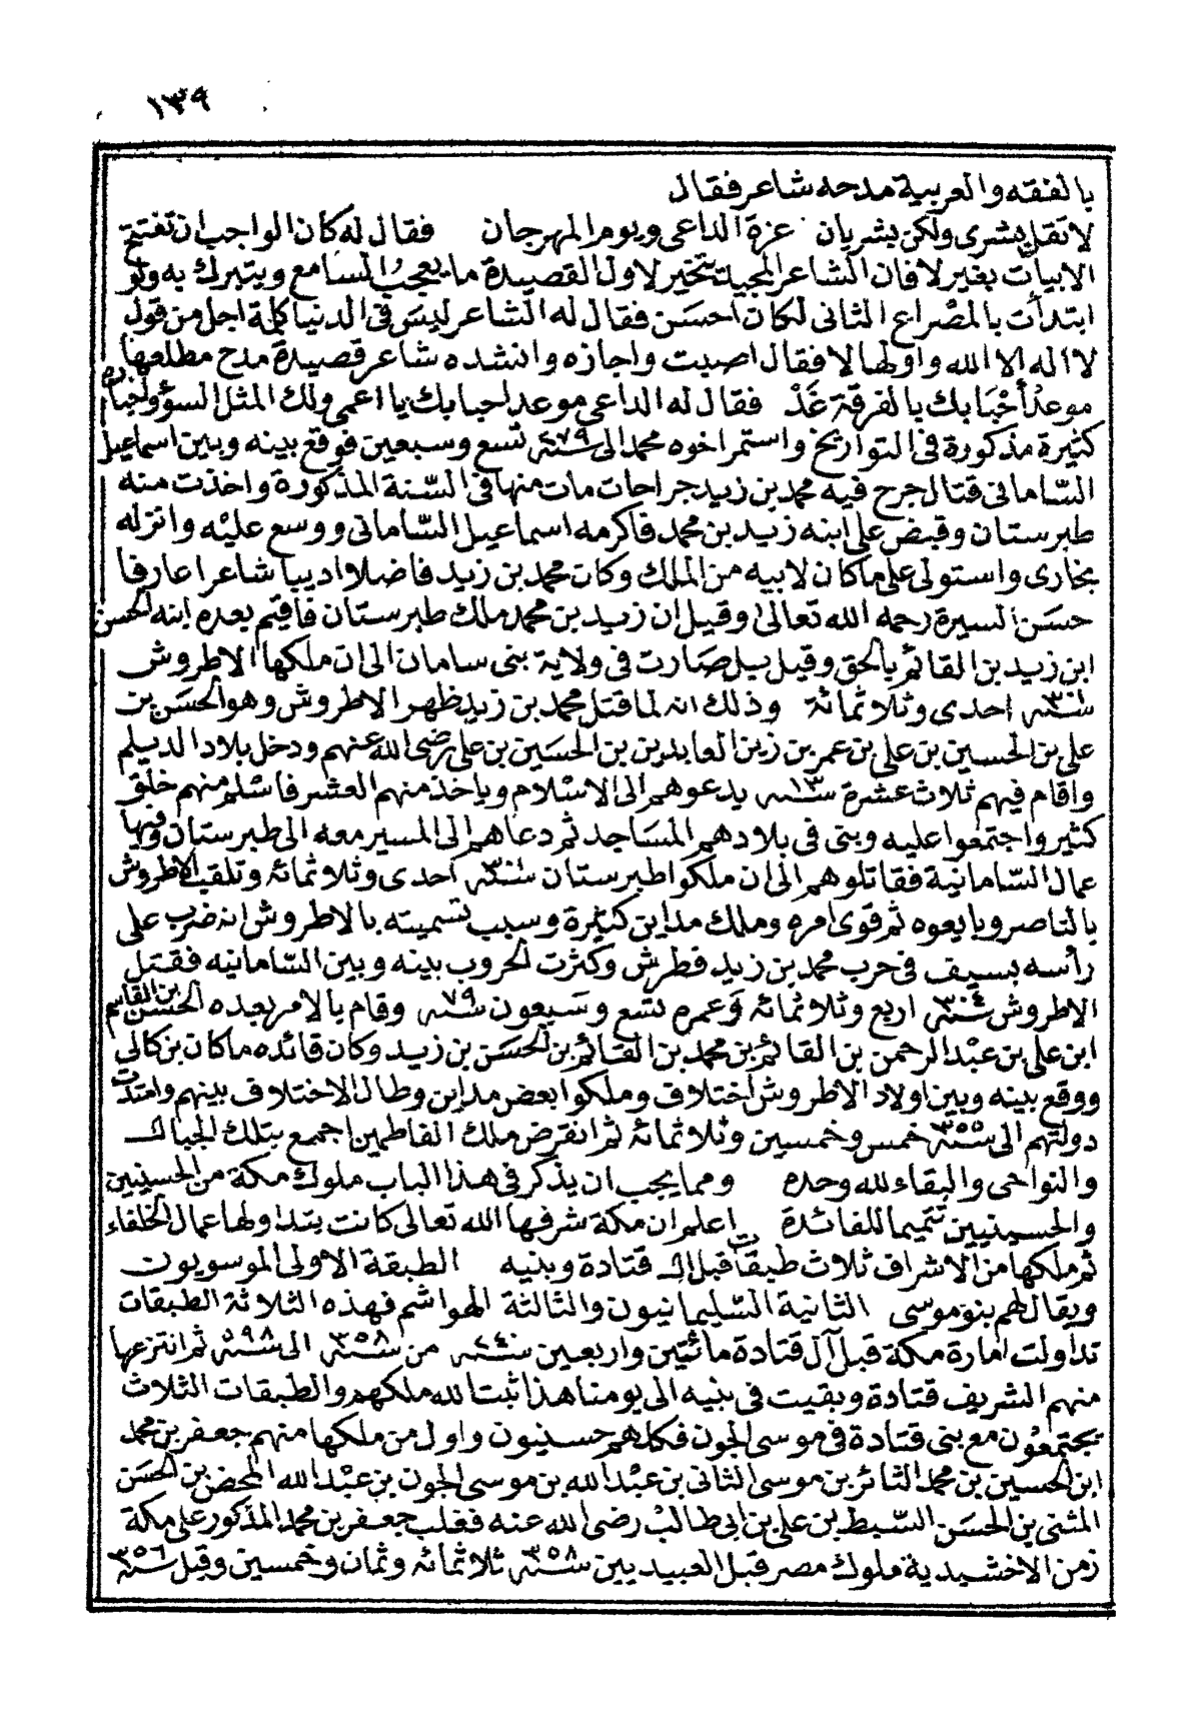 ١٣٩
بالفقه والعربية مدحه شاعر فقال
لا تقل بشرى ولكن بشريان غرة الداعى ويوم المهرجان فقال له كان الواجب ان تفتتح
الابيات بغير لا فان الشاعر المجيد يتخير لاول القصيدة ما يعجب السامع ويتبرك به ولو
ابتدأت بالمصراع الثانى لكان احسن فقال له الشاعر ليس فى الدنيا كلمة اجل من قول
لا اله الا الله واولها لا فقال اصبت واجازه وانشده شاعر قصيدة مدح مطلعها
موعد أحبابك بالفرقة غد فقال له الداعى موعد احبابك يا اعمى ولك المثل السوؤ واخباره
كثيرة مذكورة فى التواريخ واستمر اخوه محمد الى سنة ٢٧٩ تسع وسبعين فوقع بينه وبين اسماعيل
السامانى قتال جرح فيه محمد بن زيد جراحات مات منها فى السنة المذكورة واخذت منه
طبرستان وقبض على ابنه زيد بن محمد فاكرمه اسماعيل السامانى ووسع عليه وانزله
بخارى واستولى على ما كان لابيه من الملك وكان محمد بن زيد فاضلا اديبا شاعرا عارفا
حسن السيرة رحمه الله تعالى وقيل ان زيد بن محمد ملك طبرستان فاقيم بعده ابنه الحسن
ابن زيد بن القائم بالحق وقيل بل صارت فى ولاية بنى سامان الى ان ملكها الاطروش
سنة ٣٠١ احدى وثلاثمائة وذلك انه لما قتل محمد بن زيد ظهر الاطروش وهو الحسن بن
على بن الحسين بن على بن عمر بن زين العابدين بن الحسين بن على رضى الله عنهم ودخل بلاد الديلم
واقام فيهم ثلاث عشرة ١٣ سنة يدعوهم الى الاسلام وياخذ منهم العشر فاسلم منهم خلق
كثير واجتمعوا عليه وبنى فى بلادهم المساجد ثم دعاهم الى المسير معه الى طبرستان وفيها
عمال السامانية فقاتلوهم الى ان ملكوا طبرستان سنة ٣٠١ احدى وثلاثمائة وتلقب الاطروش
بالناصر وبايعوه ثم قوى امره وملك مداين كثيرة وسبب تسميته بالاطروش انه ضرب على
رأسه بسيف فى حرب محمد بن زيد فطرش وكثرت الحروب بينه وبين السامانيه فقتل
الاطروش سنة ٣٠٤ اربع وثلاثمائة وعمره تسع وسبعون ٧٩ سنة وقام بالامر بعده الحسن بن القاسم
ابن على بن عبد الرحمن بن القائم بن محمد بن القائم بن الحسن بن زيد وكان قائده ماكان بن كالى
ووقع بينه وبين اولاد الاطروش اختلاف وملكوا بعض مداين وطال الاختلاف بينهم وامتدت
دولتهم الى سنة ٣٥٥ خمس وخمسين وثلاثمائة ثم انقرض ملك الفاطمين اجمع بتلك الجبال
والنواحى والبقاء لله وحده ومما يجب ان يذكر فى هذا الباب ملوك مكة من الحسينيين
والحسينيين تتميما للفائدة اعلم ان مكة شرفها الله تعالى كانت يتداولها عمال الخلفاء
ثم ملكها من الاشراف ثلاث طبقات قبل ال قتادة وبنيه الطبقة الاولى الموسويون
ويقال لهم بنو موسى الثانية السليمانيون والثالثة الهواشم فهذه الثلاثة الطبقات
تداولت امارة مكة قبل آل قتادة مائتين واربعين ٢٤٠ سنة من سنة ٣٥٨ الى سنة ٥٩٨ ثم انتزعها
منهم الشريف قتادة وبقيت فى بنيه الى يومنا هذا ثبت الله ملكهم والطبقات الثلاث
يجتمعون مع بنى قتادة فى موسى الجون فكلهم حسنيون واول من ملكها منهم جعفر بن محمد
ابن الحسين بن محمد الثائر بن موسى الثانى بن عبد الله بن موسى الجون بن عبد الله المحض بن الحسن
المثنى بن الحسن السبط بن على بن ابى طالب رضى الله عنه فغلب جعفر بن محمد المذكور على مكة
زمن الاخشيدية ملوك مصر قبل العبيديين سنة ٣٥٨ ثلاثمائة وثمان وخمسين وقيل سنة ٣٥٦